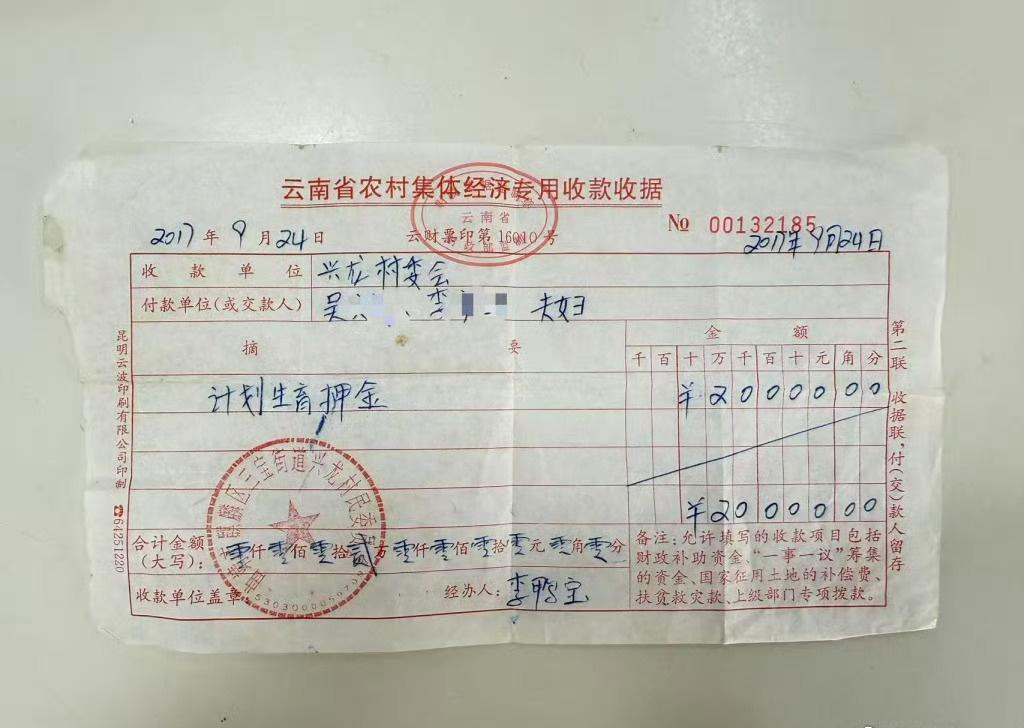 云南省农村集体经济专用收款收据
云南省
云财票印第16010号
№ 00132185
2017年9月24日
2017年9月24日
收款单位 兴龙村委会
付款单位(或交款人) 吴 李 夫妇
摘要 金额
千 百 十 万 千 百 十 元 角 分
计划生育押金 ¥20000 00
¥20000 00
合计金额(大写): 零仟零佰零拾贰万零仟零佰零拾零元零角零分
收款单位盖章 经办人: 李鸭宝
备注:允许填写的收款项目包括
财政补助资金、“一事一议”筹集
的资金、国家征用土地的补偿费、
扶贫救灾款、上级部门专项拨款。
麒麟区三宝街道兴龙村民委
昆明云波印刷有限公司印制 ☎64251220
第二联 收据联,付(交)款人留存